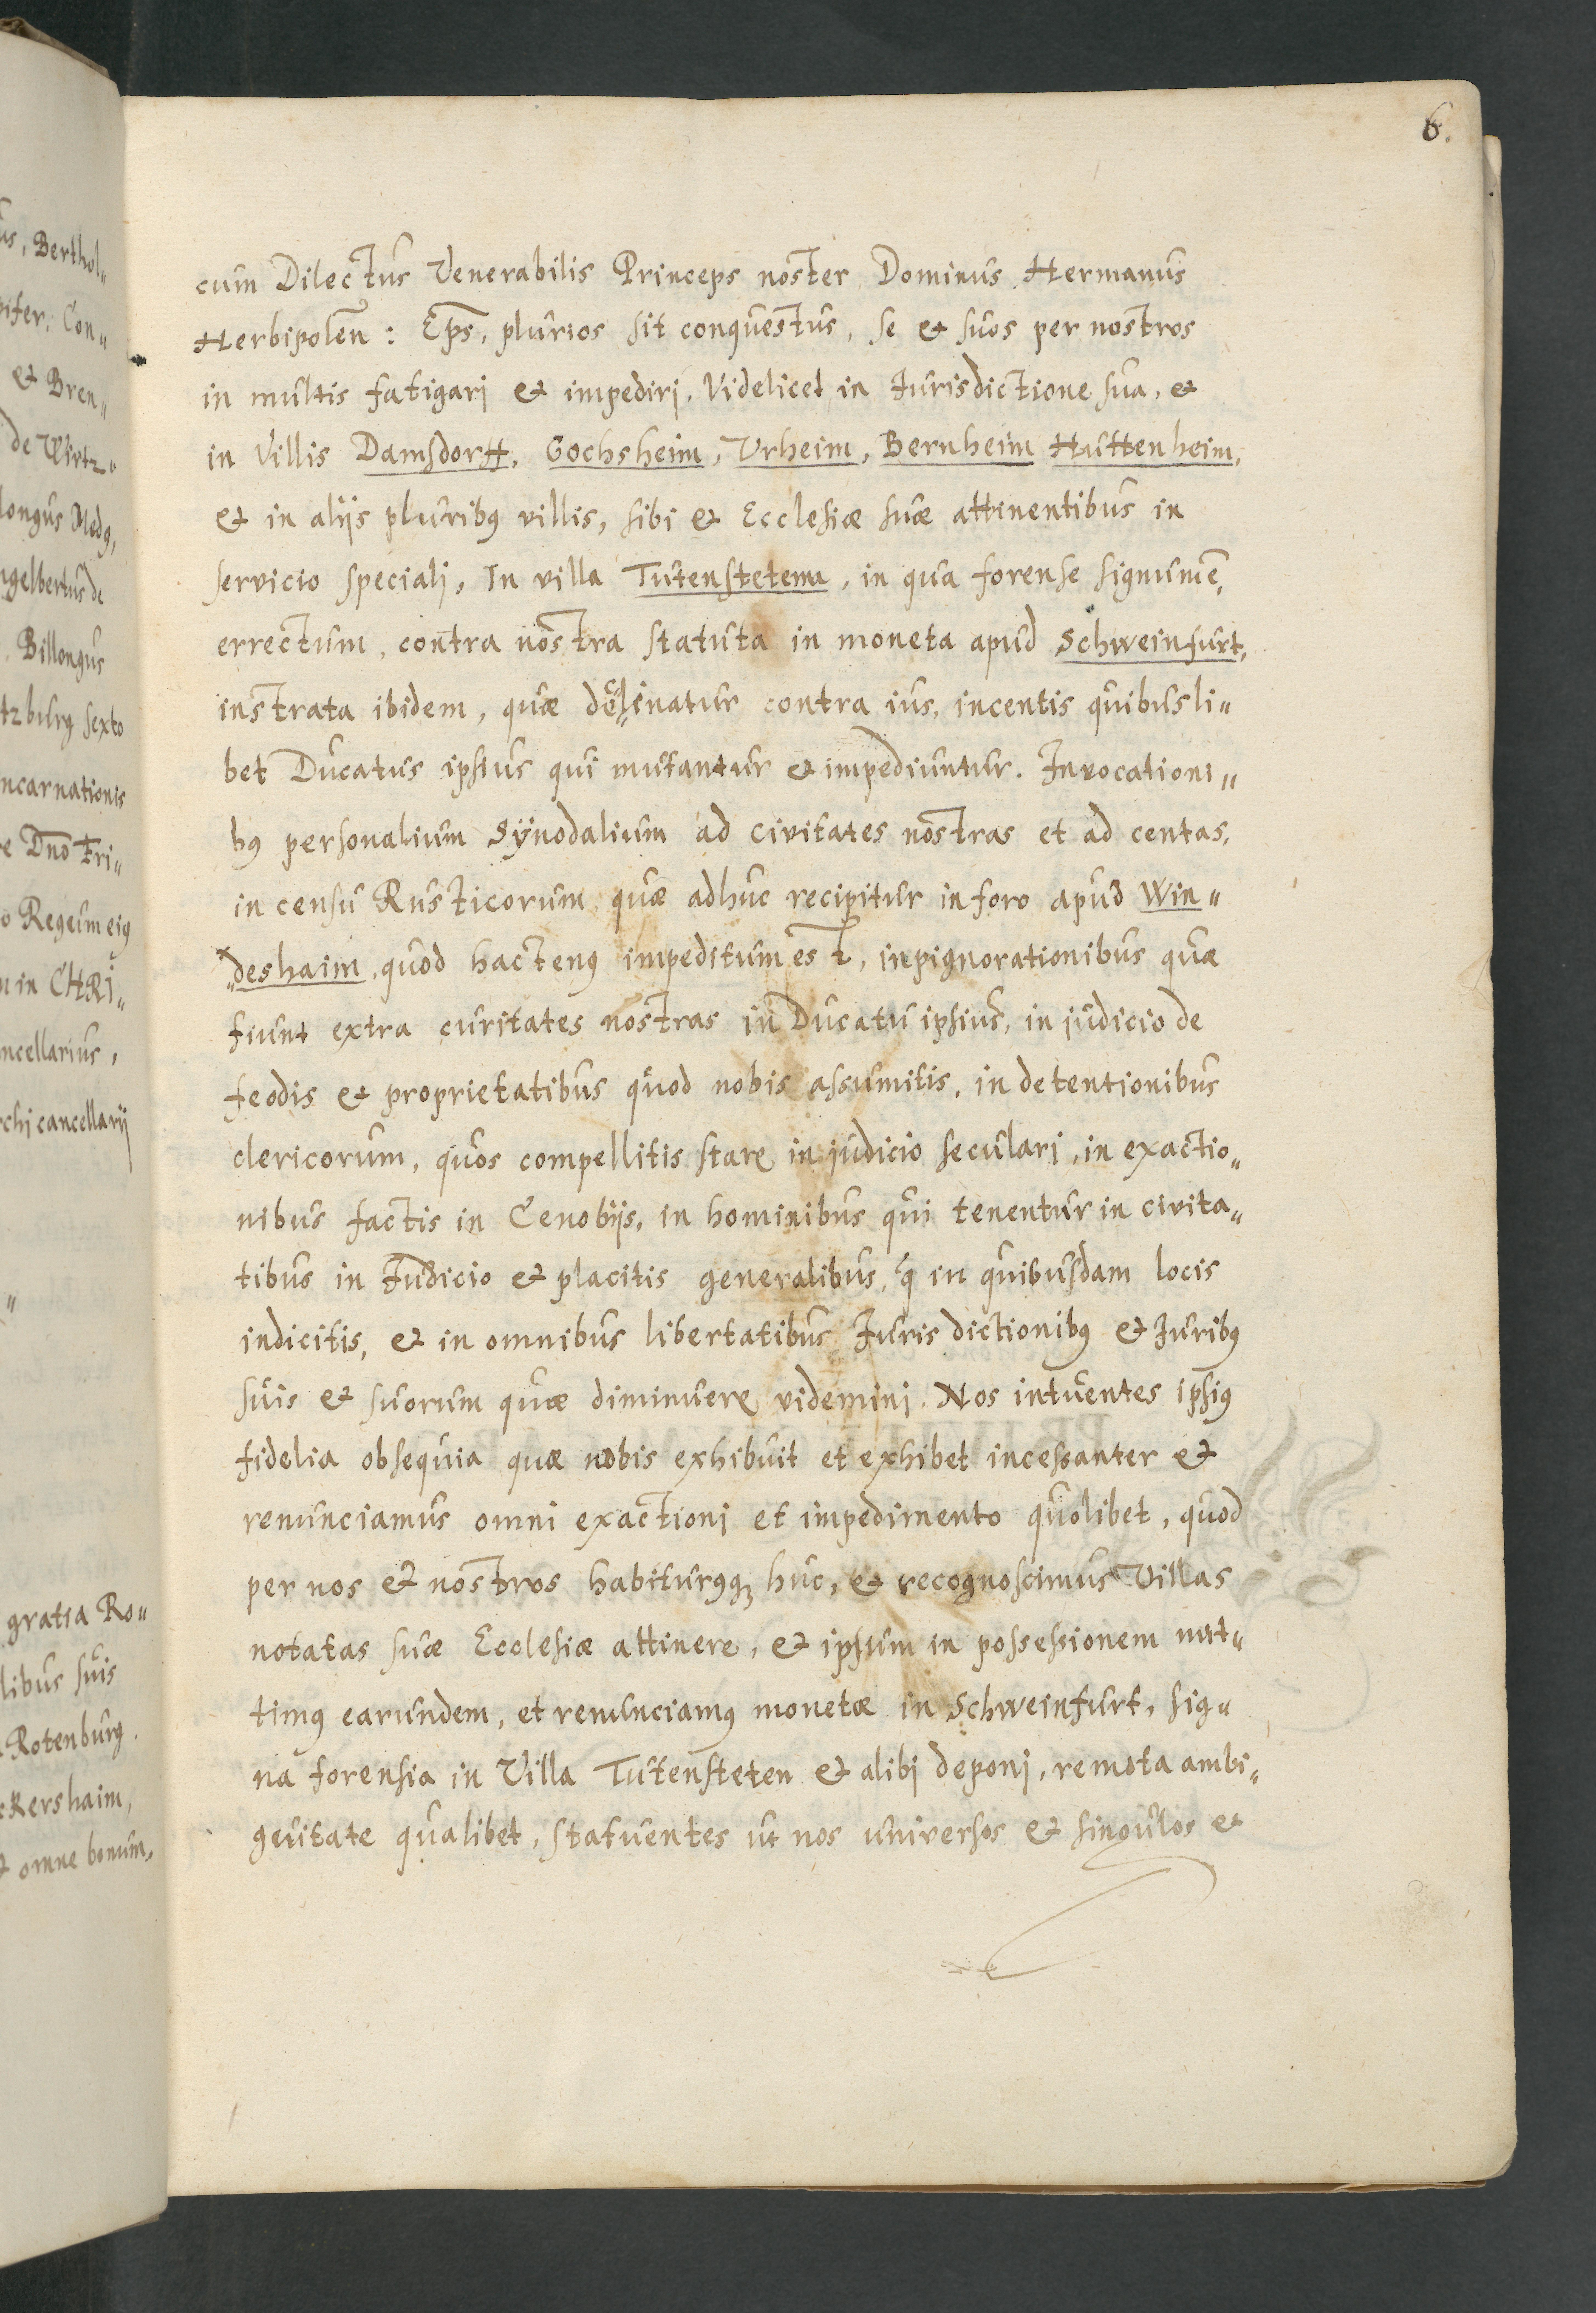 6.
cum Dilectus Venerabilis Princeps noster Dominus Hermanus
Herbipolen̄: Ep̄s, plurios sit conquestus, se & suos per nostros
in multis fatigari & impediri, Videlicet in Iurisdictione sua, &
in Villis Damsdorff, Gochsheim, Vrheim, Bernheim Huttenheim,
& in alijs pluribꝰ villis, sibi & Ecclesiæ suæ attinentibus in
servicio speciali, In villa Tutenstetenn, in qua forense signum ē,
errectum, contra nostra statuta in moneta apud Schweinfurt,
instrata ibidem, quæ contra ius, incentis quibusli„
bet Ducatus ipsius qui mutantur & impediuntur. Invocationi„
bꝰ personalium Synodalium ad civitates nostras et ad centas,
in censu Rusticorum quæ adhuc recipitur in foro apud Win„
„deshaim, quod hactenꝰ impeditum est, inpignorationibus quæ
fiunt extra curitates nostras in Ducatu ipsius, in judicio de
feodis & proprietatibus quod nobis assumitis, in detentionibus
clericorum, quos compellitis stare in judicio seculari, in exactio„
nibus factis in Cenobijs, in hominibus qui tenentur in civita„
tibus in Judicio & placitis generalibus, q̄ in quibusdam locis
indicitis, & in omnibus libertatibus Iurisdictionibꝰ & Iuribꝰ
suis & suorum quæ diminuere videmini. Nos intuentes ipsiꝰ
fidelia obsequia quæ nobis exhibuit et exhibet incessanter &
renunciamus omni exactioni et impedimento quolibet, quod
per nos & nostros habiturꝰqꝫ huc, & recognoscimus Villas
notatas suæ Ecclesiæ attinere, & ipsum in possessionem mit„
timꝰ earundem, et renunciamꝰ monetæ in Schweinfurt, sig„
na forensia in Villa Tutensteten & alibi deponi, remota ambi„
guitate qualibet, statuentes ut nos universos & singulos &